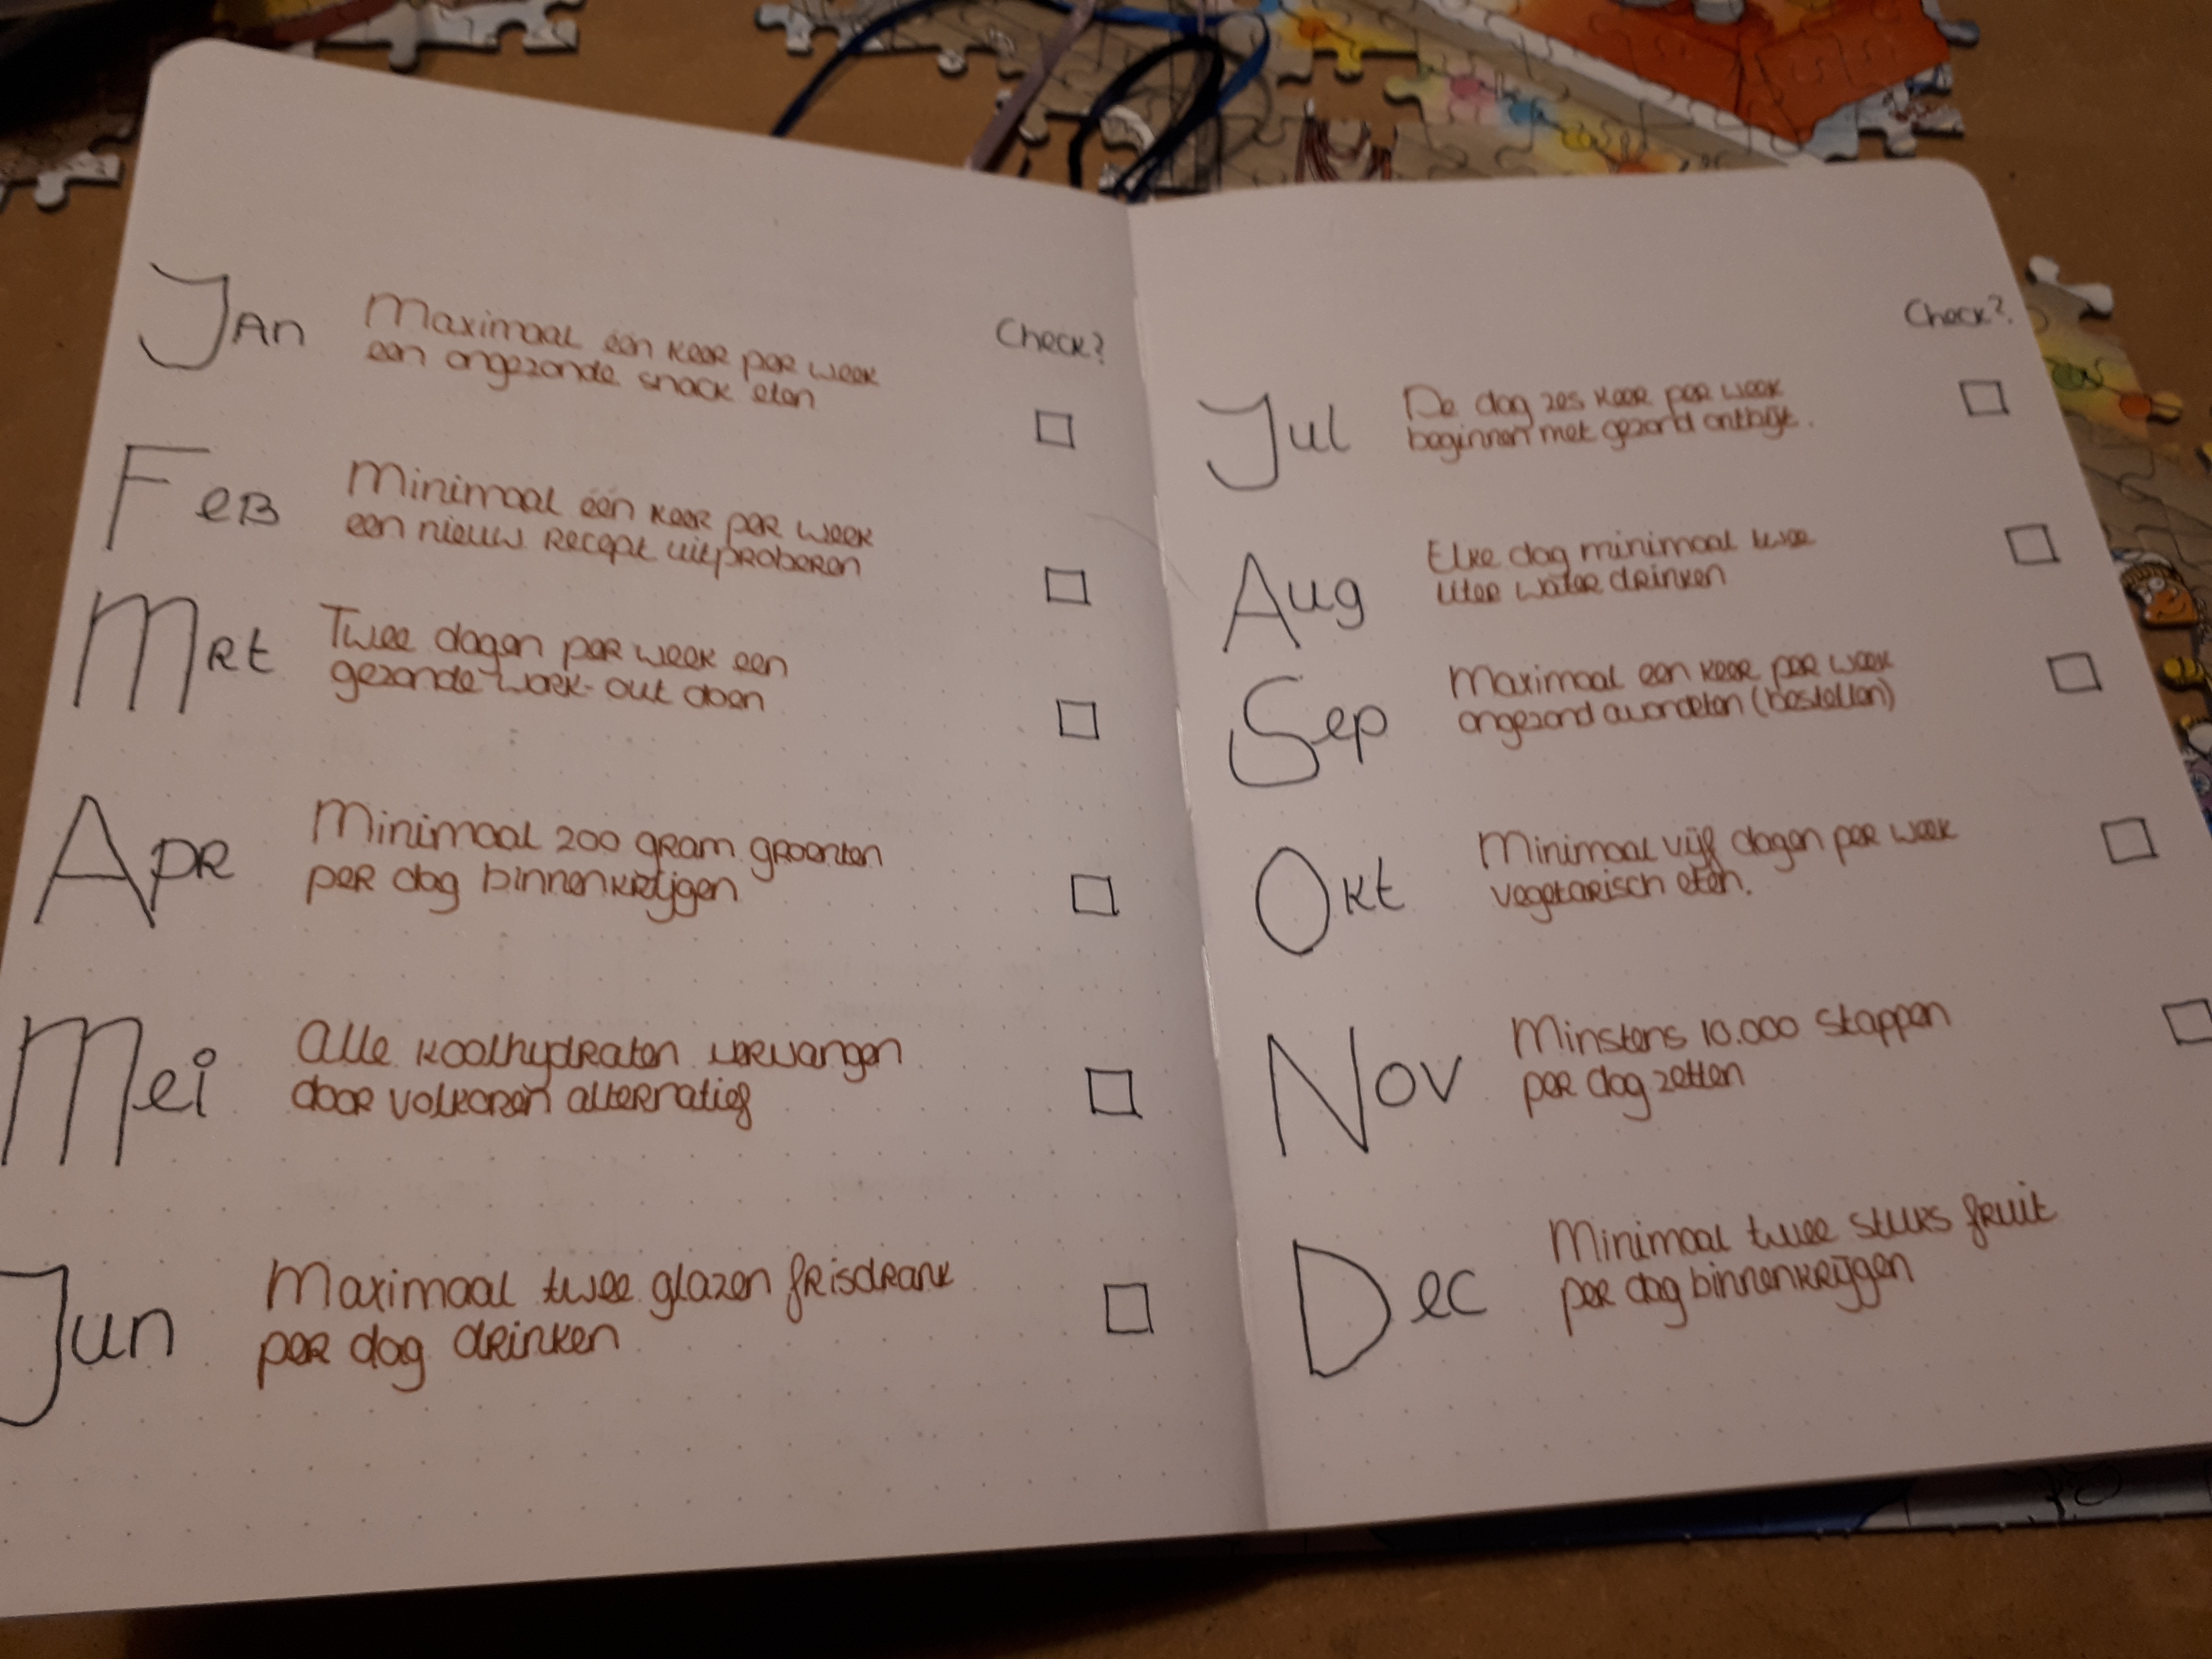 Check?
Jan Maximaal één keer per week
een ongezonde snack eten
Feb Minimaal één keer per week
een nieuw recept uitproberen
Mrt Twee dagen per week een
gezonde work-out doen
Apr Minimaal 200 gram groenten
per dag binnenkrijgen
Mei Alle koolhydraten vervangen
door volkoren alternatief
Jun Maximaal twee glazen frisdrank
per dag drinken
Check?
Jul De dag zes keer per week
beginnen met gezond ontbijt.
Aug Elke dag minimaal twee
liter water drinken
Sep Maximaal een keer per week
ongezond avondeten (bestellen)
Okt Minimaal vijf dagen per week
vegetarisch eten.
Nov Minstens 10.000 stappen
per dag zetten
Dec Minimaal twee stuks fruit
per dag binnenkrijgen